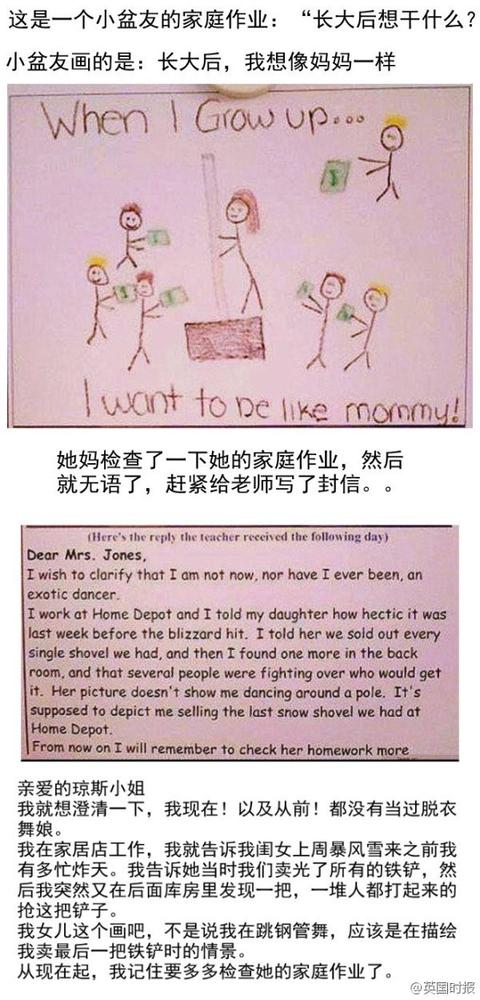 这是一个小盆友的家庭作业：“长大后想干什么？
小盆友画的是：长大后，我想像妈妈一样
When I Grow up...
I want to be like mommy!
她妈检查了一下她的家庭作业，然后
就无语了，赶紧给老师写了封信。。
(Here's the reply the teacher received the following day)
Dear Mrs. Jones,
I wish to clarify that I am not now, nor have I ever been, an
exotic dancer.
I work at Home Depot and I told my daughter how hectic it was
last week before the blizzard hit. I told her we sold out every
single shovel we had, and then I found one more in the back
room, and that several people were fighting over who would get
it. Her picture doesn't show me dancing around a pole. It's
supposed to depict me selling the last snow shovel we had at
Home Depot.
From now on I will remember to check her homework more
亲爱的琼斯小姐
我就想澄清一下，我现在！以及从前！都没有当过脱衣
舞娘。
我在家居店工作，我就告诉我闺女上周暴风雪来之前我
有多忙炸天。我告诉她当时我们卖光了所有的铁铲，然
后我突然又在后面库房里发现一把，一堆人都打起来的
抢这把铲子。
我女儿这个画吧，不是说我在跳钢管舞，应该是在描绘
我卖最后一把铁铲时的情景。
从现在起，我记住要多多检查她的家庭作业了。
@英国时报